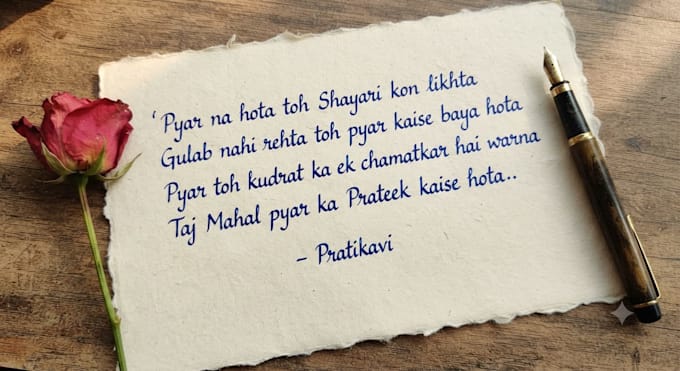 ‘Pyar na hota toh Shayari kon likhta
Gulab nahi rehta toh pyar kaise baya hota
Pyar toh kudrat ka ek chamatkar hai warna
Taj Mahal pyar ka Prateek kaise hota..
– Pratikavi